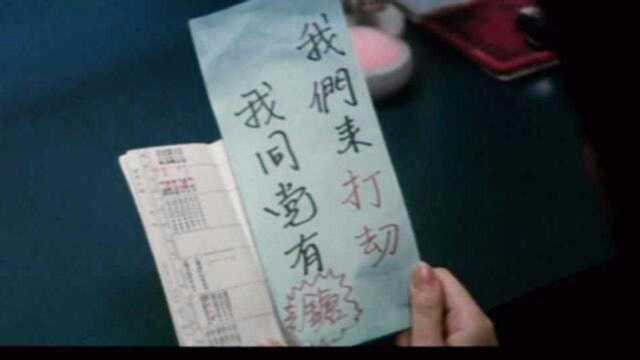 我們来打劫
我同党有